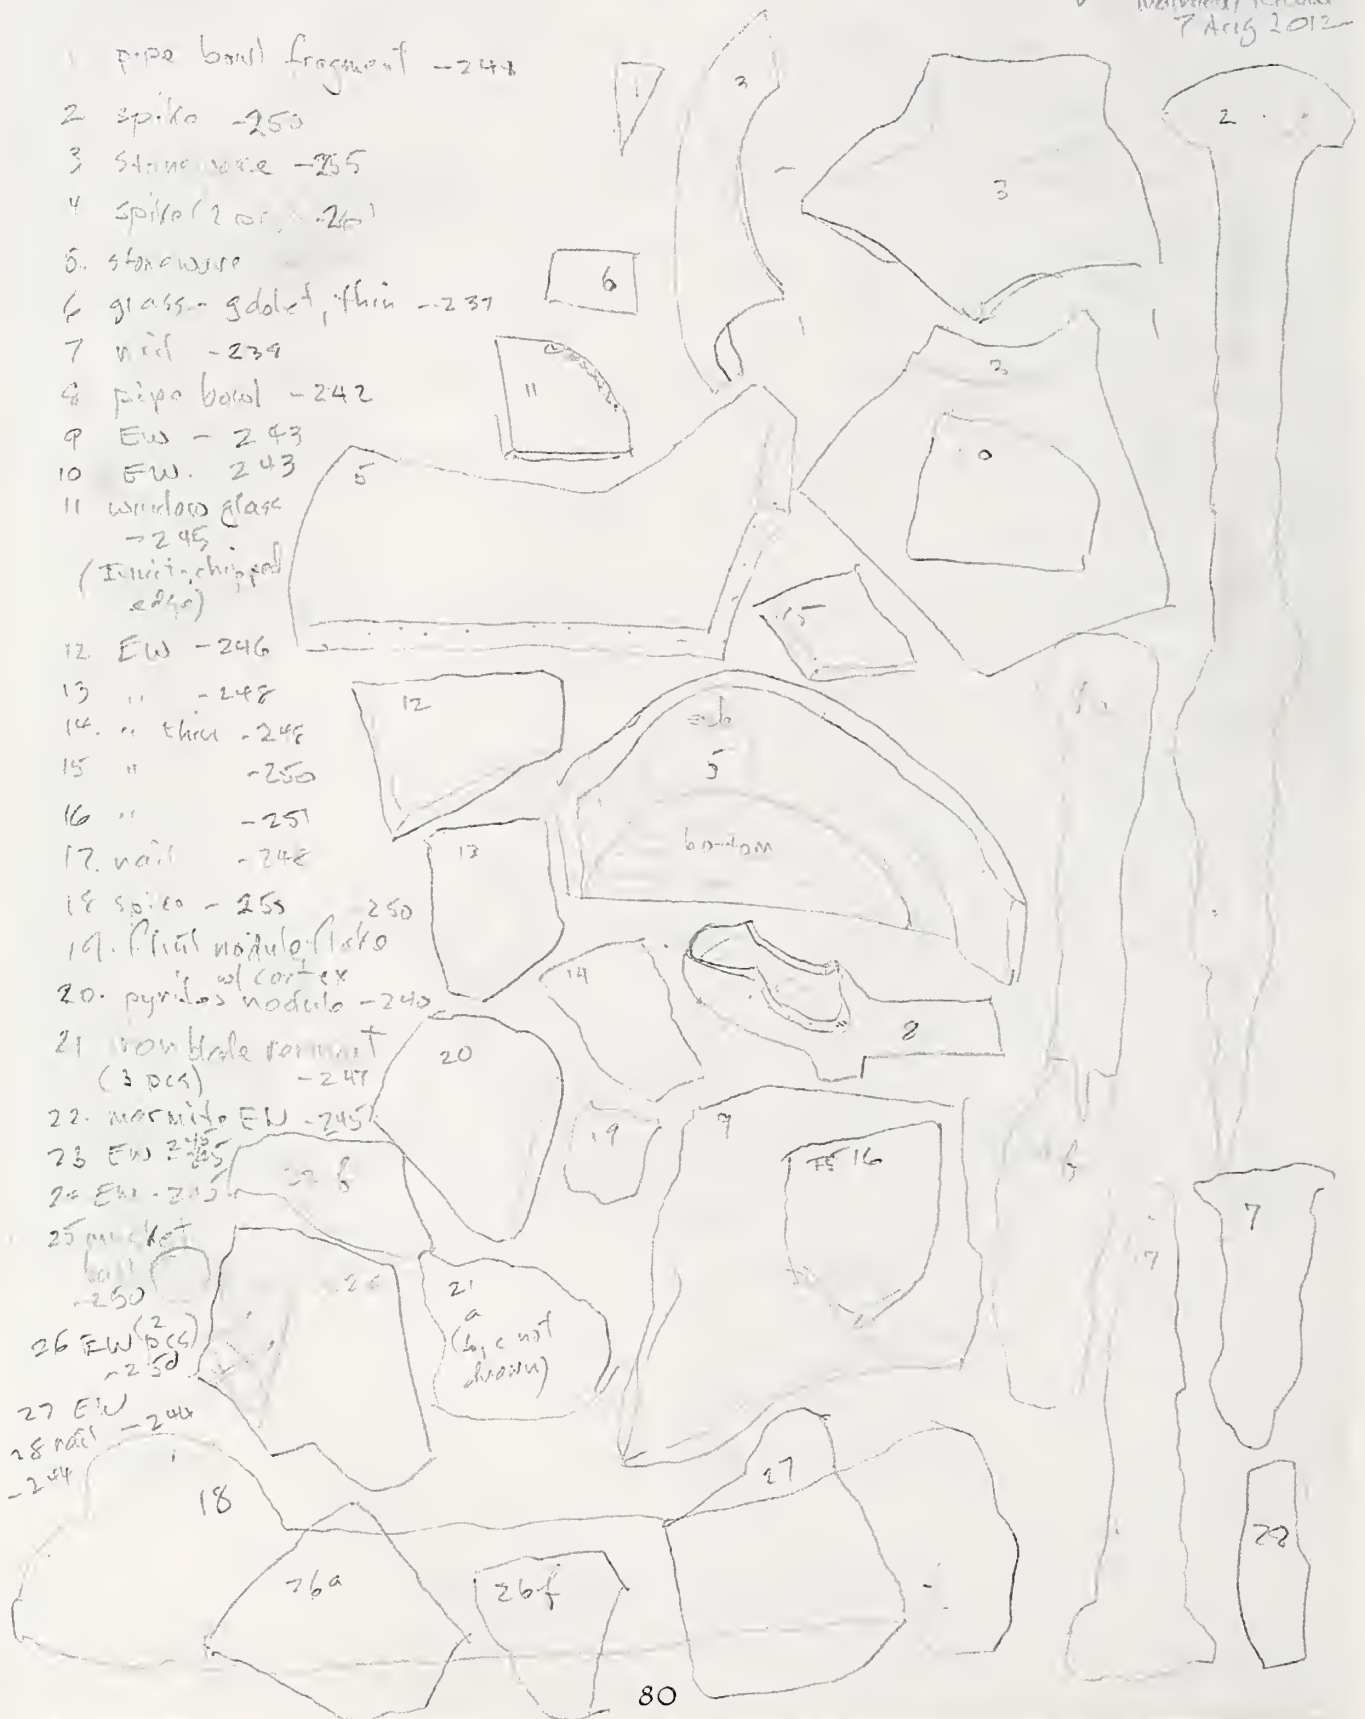 7 Aug 2012
1 pipe bowl fragment -244
2 spike -250
3 stoneware -255
4 spike (2 -261
5. stoneware
6 glass - goblet, thin -237
7 nail -239
8 pipe bowl -242
9 EW - 243
10 EW. 243
11 window glass
-245
(Inuit-chipped
edge)
12 EW -246
13 " -248
14. " thin -248
15 " -250
16 " -251
17. nail -248
18 spike - 255
19. flint nodule flake -250
w/ cortex
20. pyrites nodule -240
21 iron blade remnant
(3 pcs) -247
22. marmite EW -245
23 EW 245
24 EW -245
25 musket
ball
-250
26 EW (2 pcs)
-250
27 EW
-244
28 nail
-244
1
3
3
2
6
11
3
5
15
12
5
bottom
13
14
8
20
19
9
16
7
7
21
a
(b, c not
drawn)
18
27
28
26a
26b
80